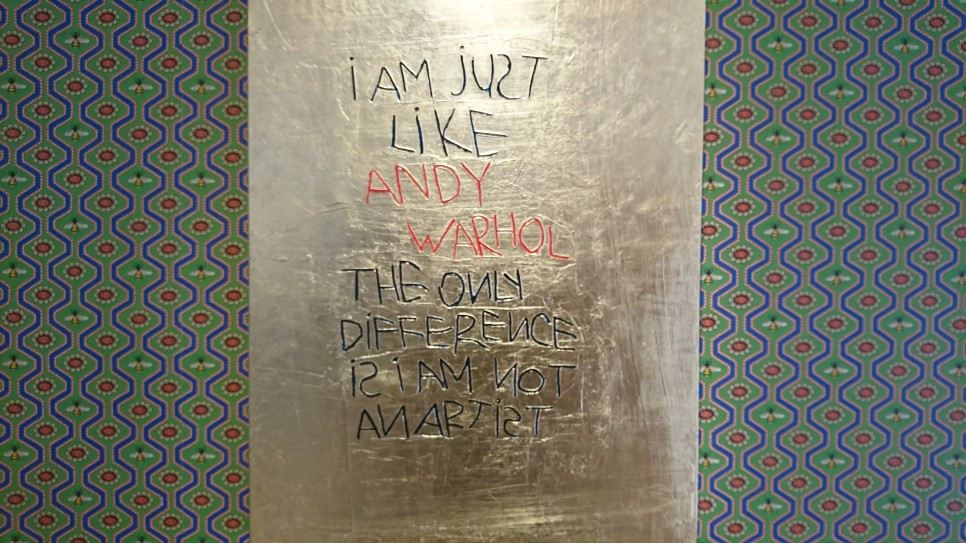 i AM jUST
LiKE
ANDY
WARHOL
THE ONLY
DiFFERENCE
iS i AM NOT
AN ARTiST